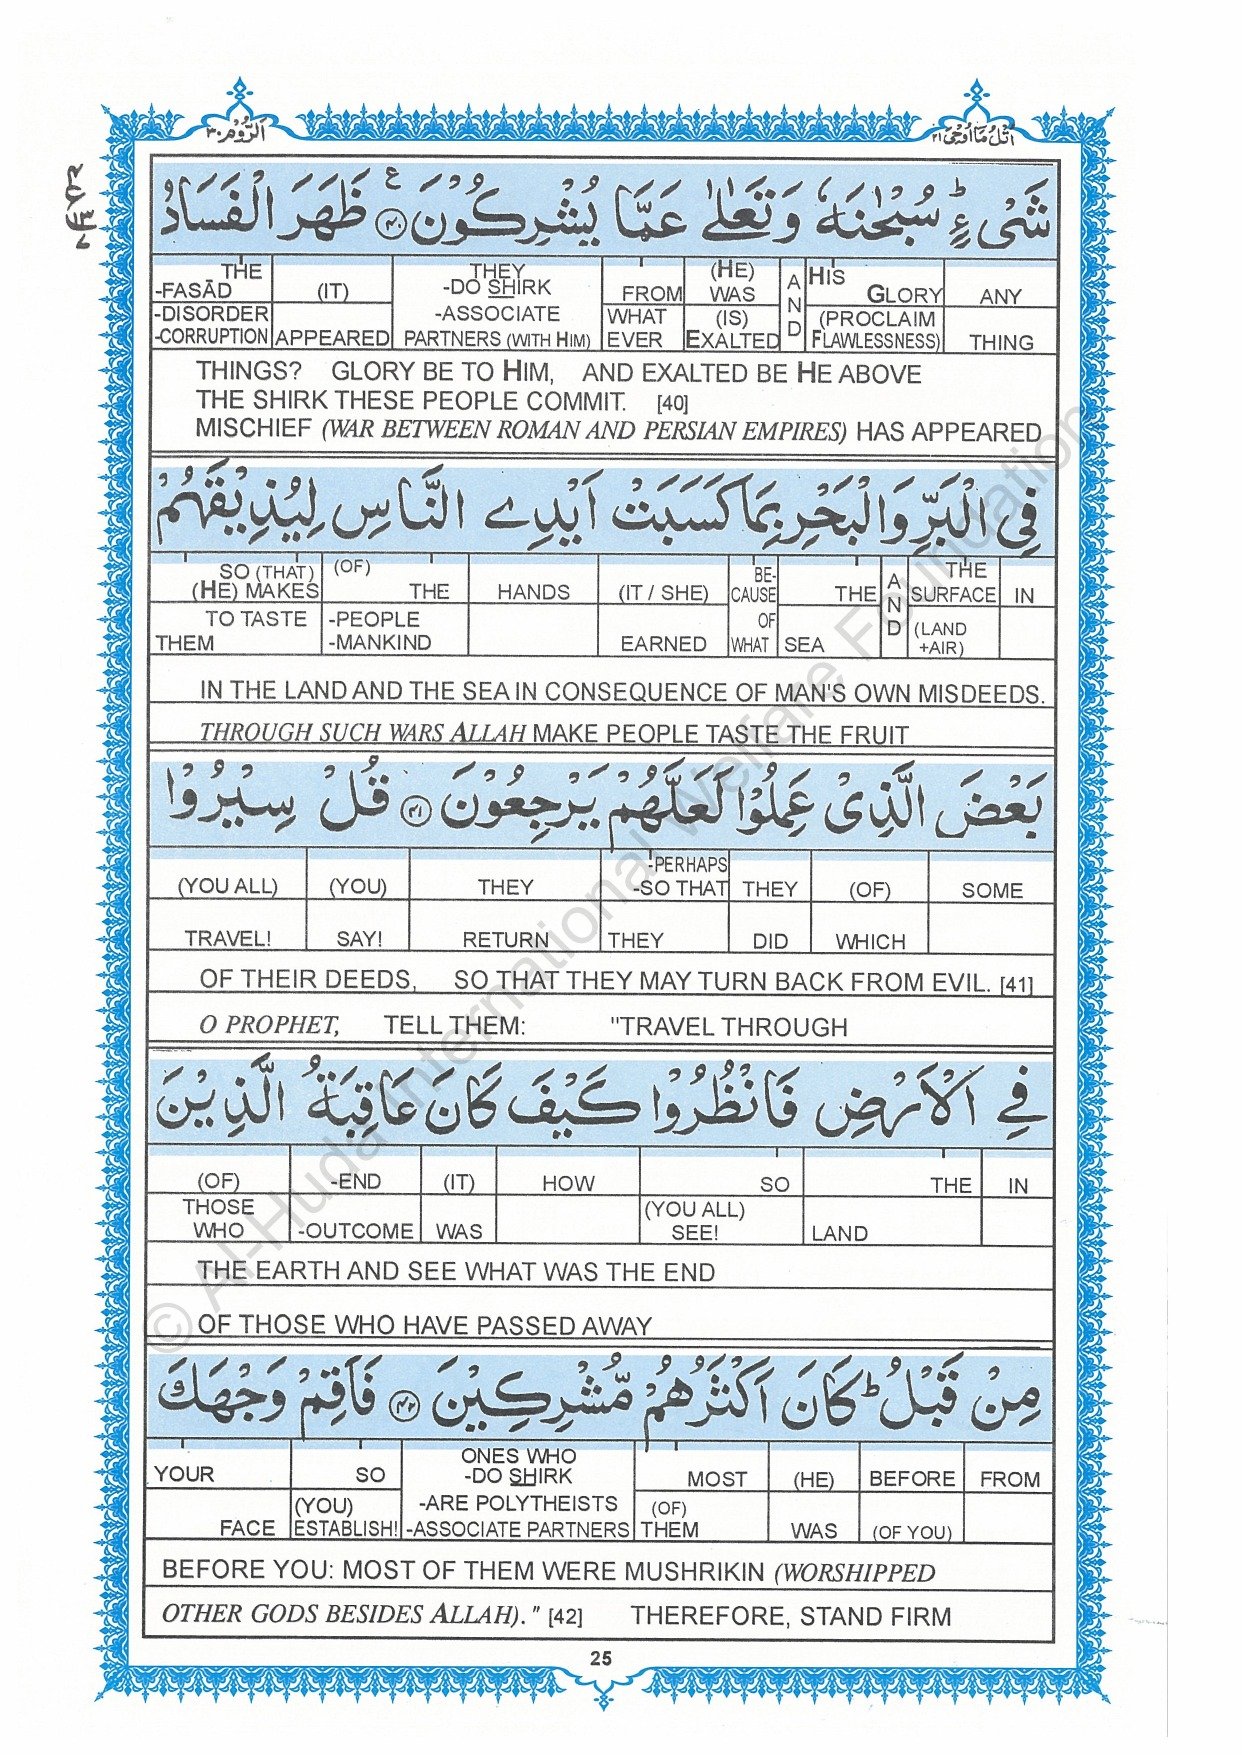 الرّوم ٣٠
اتل ما اوحی ٢١
شَیْءٍ ؕ سُبْحٰنَهٗ وَ تَعٰلٰی عَمَّا یُشْرِكُوْنَ ﴿۴۰﴾ ع ظَهَرَ الْفَسَادُ
THE -FASĀD (IT) THEY -DO SHIRK FROM (HE) WAS AND HIS GLORY ANY
-DISORDER -CORRUPTION APPEARED -ASSOCIATE PARTNERS (WITH HIM) WHAT EVER (IS) EXALTED (PROCLAIM FLAWLESSNESS) THING
THINGS? GLORY BE TO HIM, AND EXALTED BE HE ABOVE
THE SHIRK THESE PEOPLE COMMIT. [40]
MISCHIEF (WAR BETWEEN ROMAN AND PERSIAN EMPIRES) HAS APPEARED
فِی الْبَرِّ وَ الْبَحْرِ بِمَا كَسَبَتْ اَیْدِی النَّاسِ لِیُذِیْقَهُمْ
SO (THAT) (HE) MAKES (OF) THE HANDS (IT / SHE) BE- CAUSE OF WHAT THE AND THE SURFACE IN
TO TASTE THEM -PEOPLE -MANKIND EARNED SEA (LAND +AIR)
IN THE LAND AND THE SEA IN CONSEQUENCE OF MAN'S OWN MISDEEDS.
THROUGH SUCH WARS ALLAH MAKE PEOPLE TASTE THE FRUIT
بَعْضَ الَّذِیْ عَمِلُوْا لَعَلَّهُمْ یَرْجِعُوْنَ ﴿۴۱﴾ قُلْ سِیْرُوْا
(YOU ALL) (YOU) THEY -PERHAPS -SO THAT THEY (OF) SOME
TRAVEL! SAY! RETURN THEY DID WHICH
OF THEIR DEEDS, SO THAT THEY MAY TURN BACK FROM EVIL. [41]
O PROPHET, TELL THEM: "TRAVEL THROUGH
فِی الْاَرْضِ فَانْظُرُوْا كَیْفَ كَانَ عَاقِبَةُ الَّذِیْنَ
(OF) -END (IT) HOW SO THE IN
THOSE WHO -OUTCOME WAS (YOU ALL) SEE! LAND
THE EARTH AND SEE WHAT WAS THE END
OF THOSE WHO HAVE PASSED AWAY
مِنْ قَبْلُ ؕ كَانَ اَكْثَرُهُمْ مُّشْرِكِیْنَ ﴿۴۲﴾ فَاَقِمْ وَجْهَكَ
YOUR SO ONES WHO -DO SHIRK MOST (HE) BEFORE FROM
FACE (YOU) ESTABLISH! -ARE POLYTHEISTS -ASSOCIATE PARTNERS (OF) THEM WAS (OF YOU)
BEFORE YOU: MOST OF THEM WERE MUSHRIKIN (WORSHIPPED
OTHER GODS BESIDES ALLAH)." [42] THEREFORE, STAND FIRM
25
© Al-Huda International Welfare Foundation